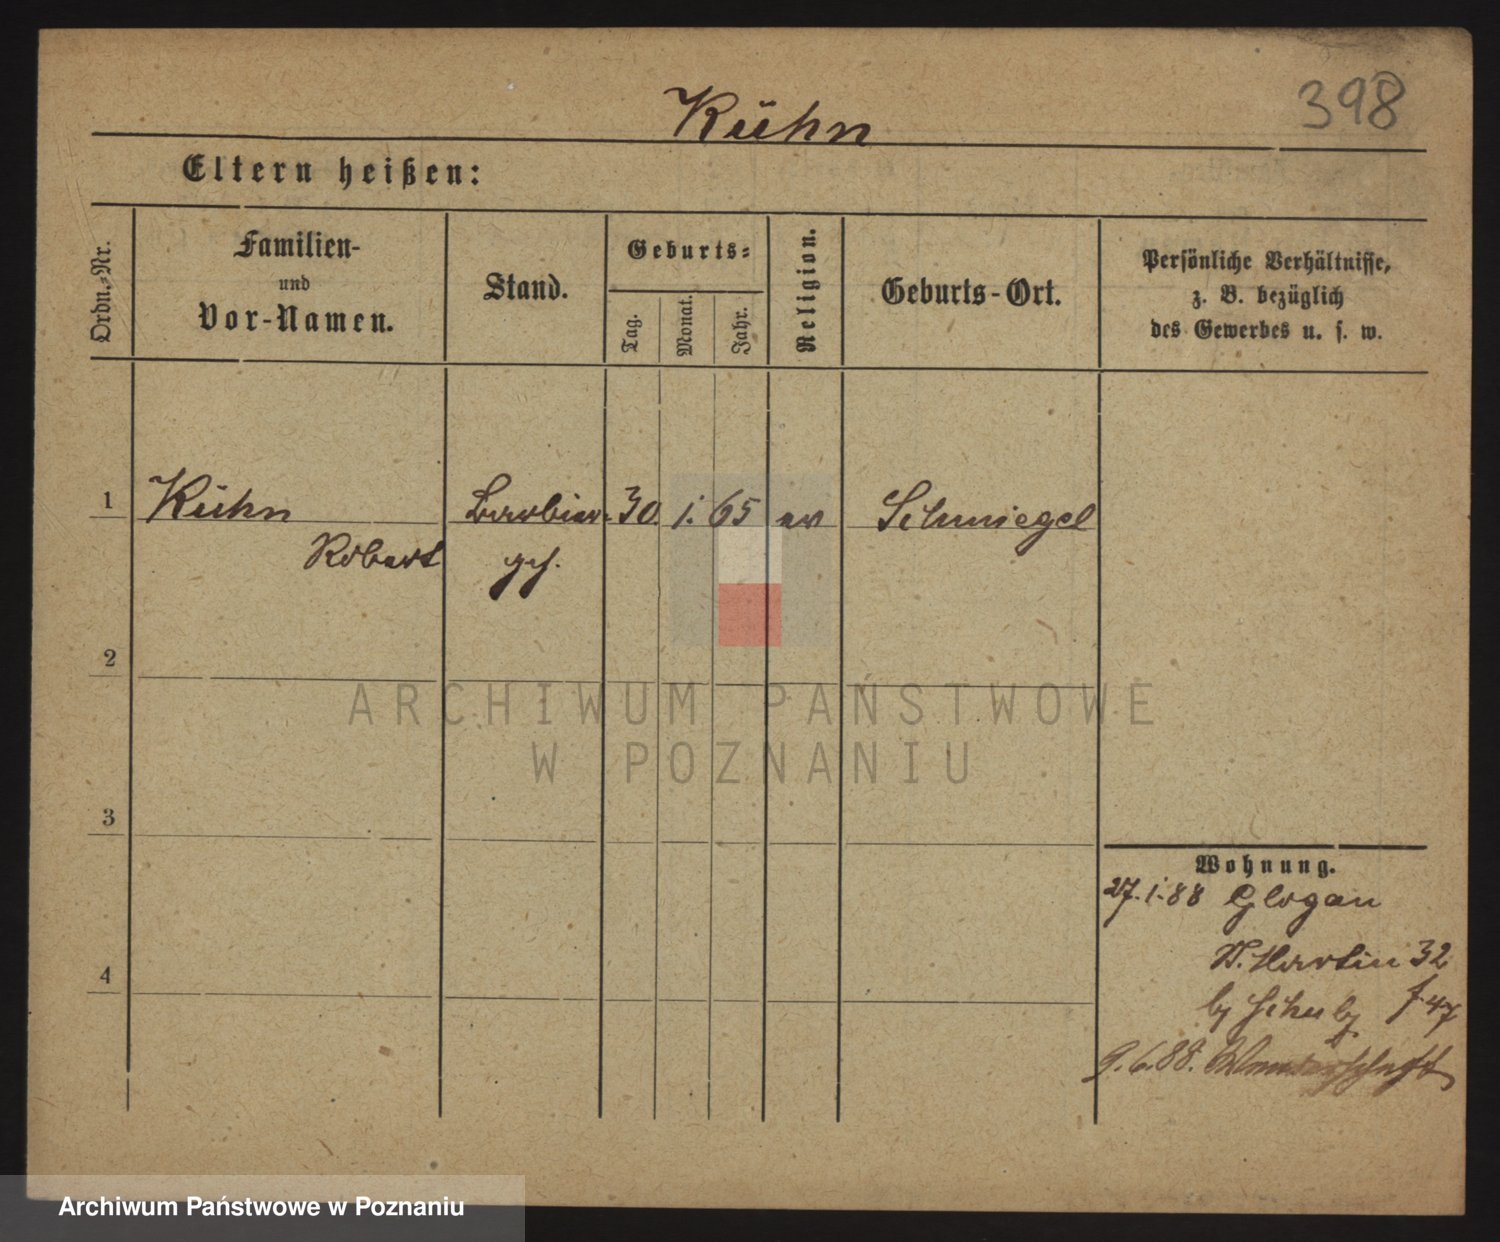 398
Kühn
Eltern heißen:
Ordn.-Nr.
Familien-
und
Vor-Namen.
Stand.
Geburts-
Tag.
Monat.
Jahr.
Religion.
Geburts-Ort.
Persönliche Verhältnisse,
z. B. bezüglich
des Gewerbes u. s. w.
1 Kühn Barbier- 30. 1. 65 ev Schmiegel
Robert geh.
2
3
4
Wohnung.
27.1.88 Glogau
St. Martin 32
by
9.6.88. Wanderschaft
ARCHIWUM PAŃSTWOWE
W POZNANIU
Archiwum Państwowe w Poznaniu